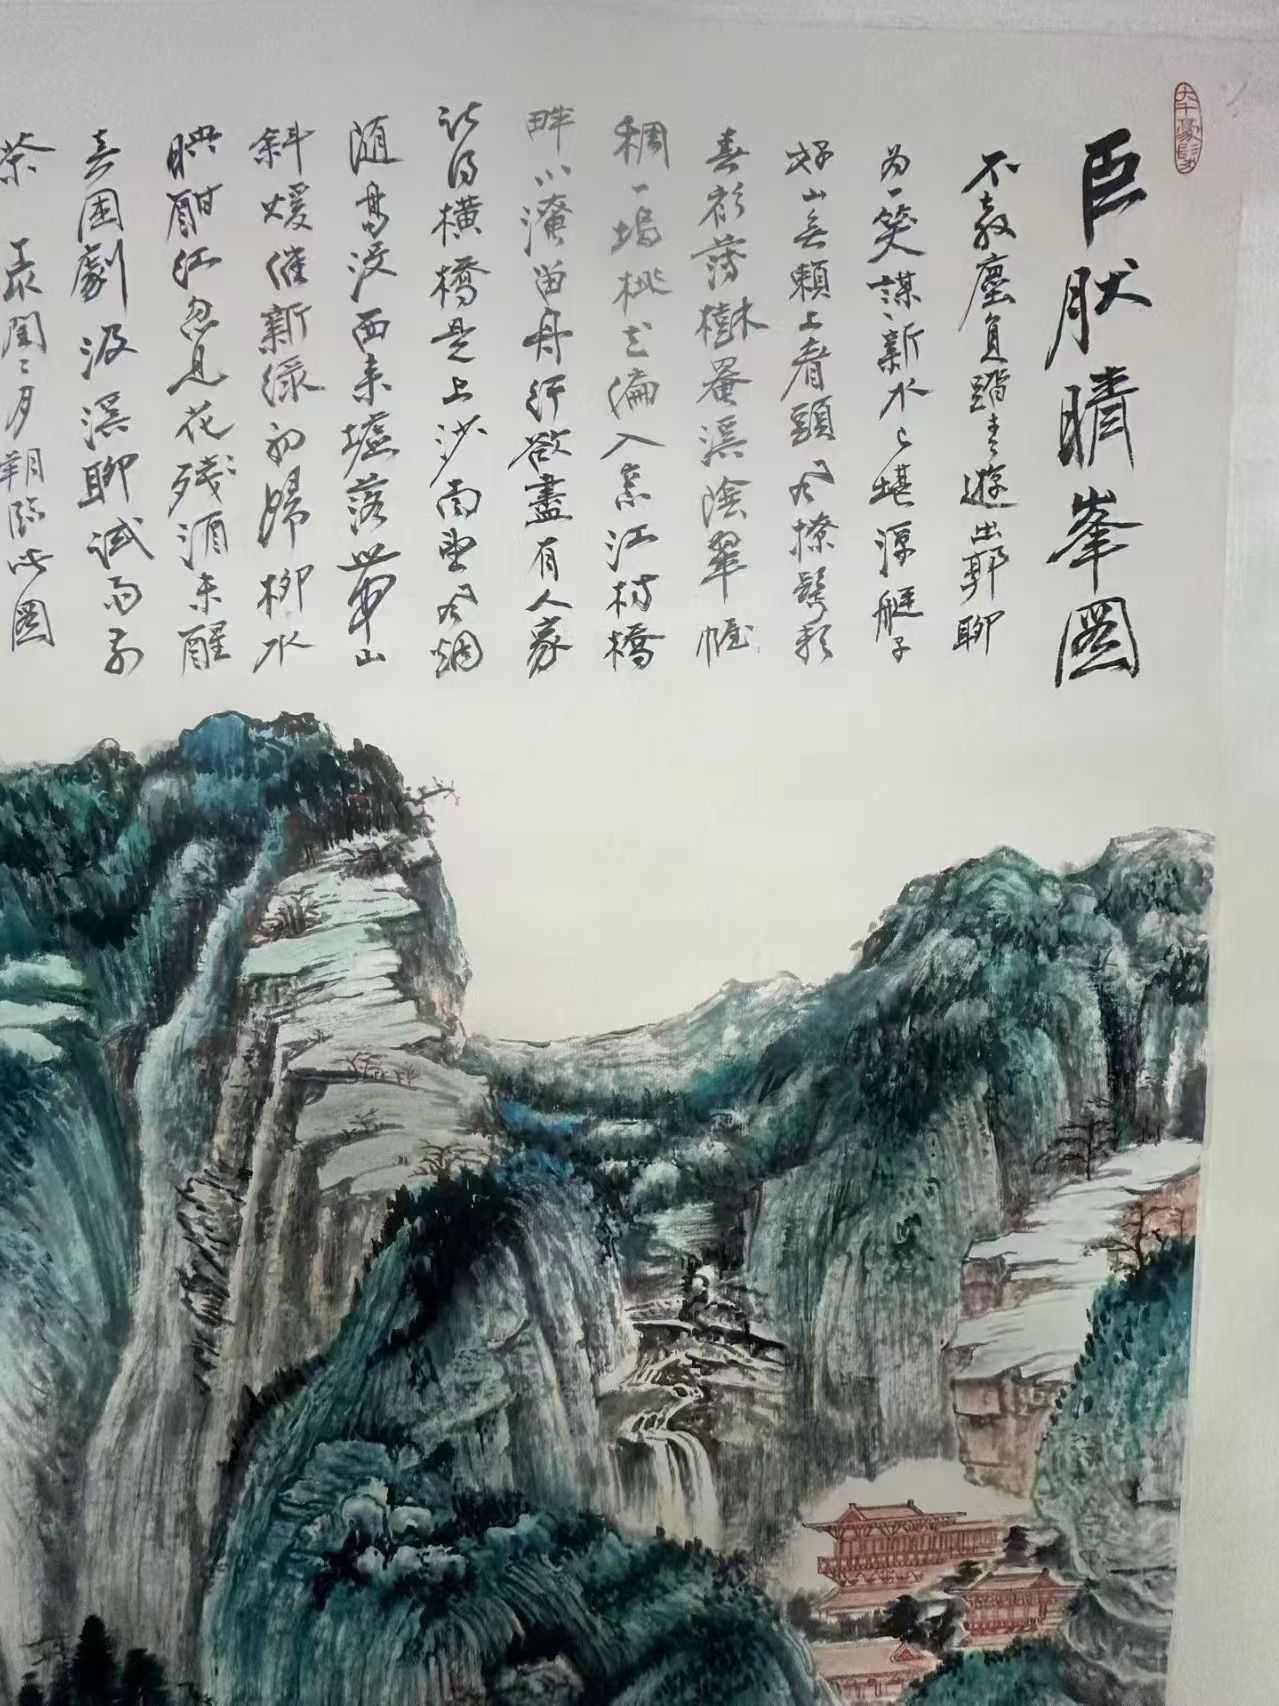 大千豪髮
巨然晴峯圖
不教塵負踏青遊出郭聊
為一笑謀新水已堪浮艇子
好山無賴上眉頭風撩鬢影
春衫薄樹罨溪陰翠幄
稠一塢桃花偏入意江村橋
畔小淹留舟行欲盡有人家
記得橫橋是上沙雨里風烟
隨鳥沒西來墟落帶山
斜煖催新綠初歸柳水
映酣紅忽見花殘酒未醒
春困劇汲溪聊試雨前
茶 閏二月朔臨此圖